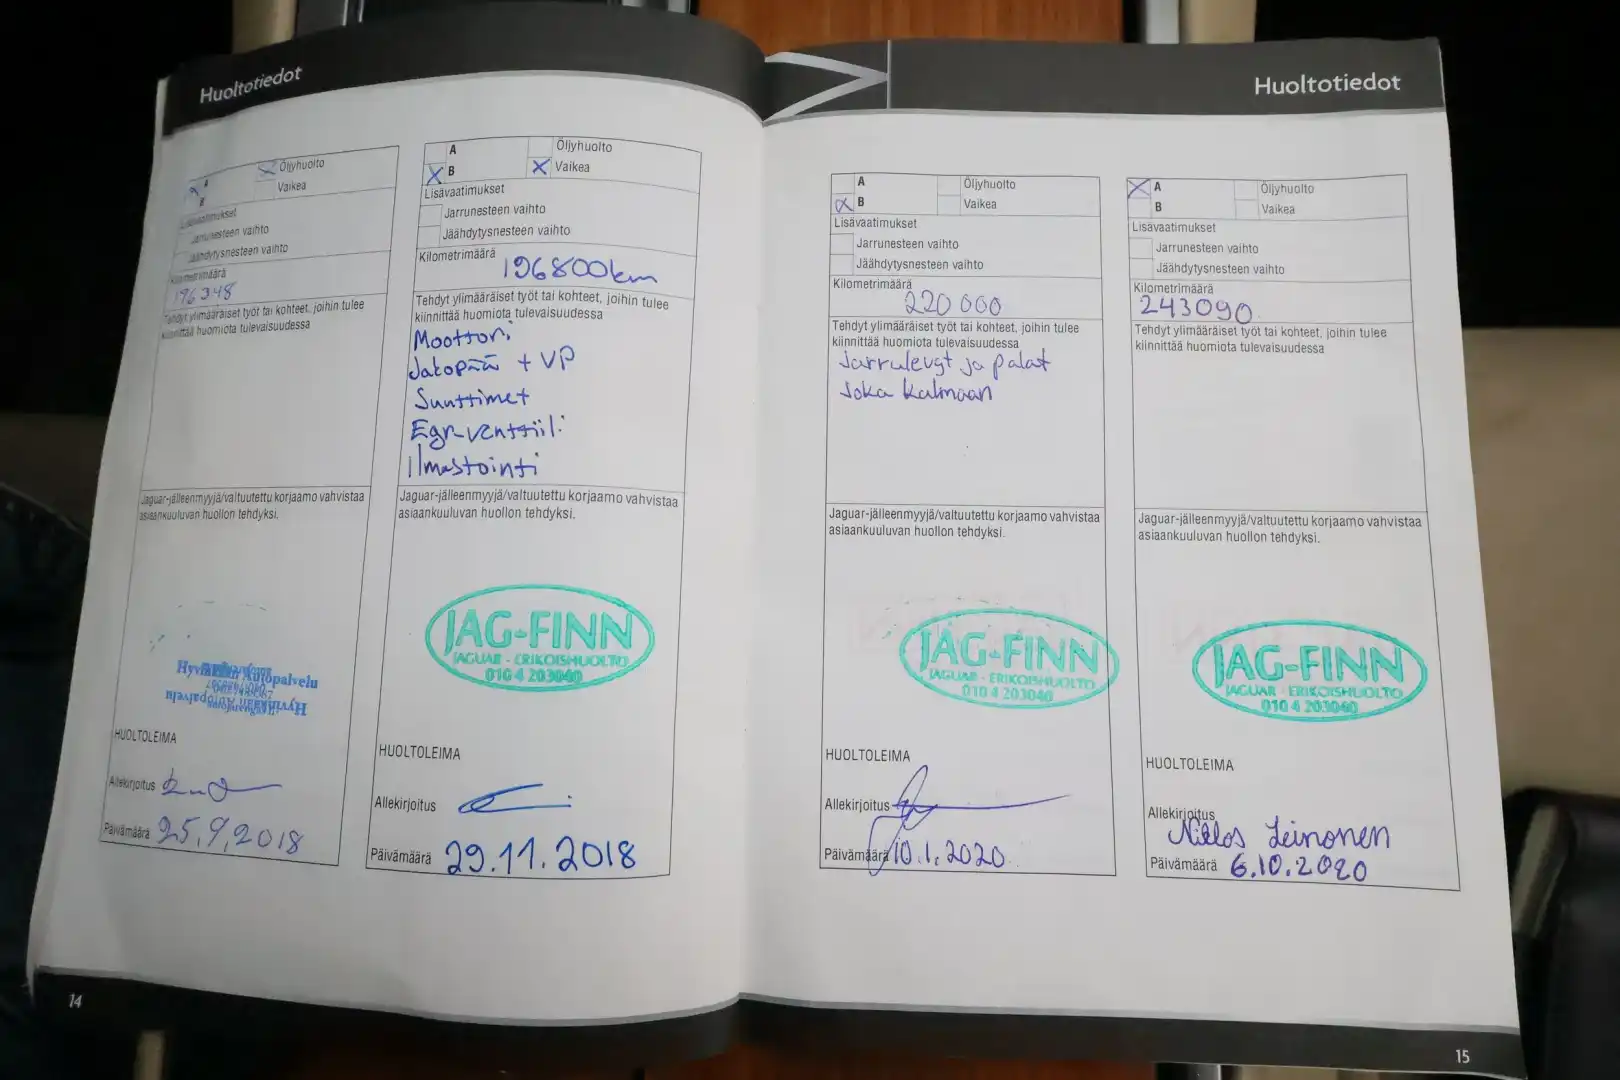 Huoltotiedot
A
Öljyhuolto
B
Vaikea
Lisävaatimukset
Jarrunesteen vaihto
Jäähdytysnesteen vaihto
Kilometrimäärä
196348
Tehdyt ylimääräiset työt tai kohteet, joihin tulee
kiinnittää huomiota tulevaisuudessa
Jaguar-jälleenmyyjä/valtuutettu korjaamo vahvistaa
asiaankuuluvan huollon tehdyksi.
Autopalvelu
HUOLTOLEIMA
Allekirjoitus
Päivämäärä 25.9.2018
A
Öljyhuolto
X B
X Vaikea
Lisävaatimukset
Jarrunesteen vaihto
Jäähdytysnesteen vaihto
Kilometrimäärä
196800km
Tehdyt ylimääräiset työt tai kohteet, joihin tulee
kiinnittää huomiota tulevaisuudessa
Moottori
Jakopää + VP
Suuttimet
Egr-venttiili
Ilmastointi
Jaguar-jälleenmyyjä/valtuutettu korjaamo vahvistaa
asiaankuuluvan huollon tehdyksi.
JAG-FINN
JAGUAR - ERIKOISHUOLTO
010 4 203040
HUOLTOLEIMA
Allekirjoitus
Päivämäärä 29.11.2018
14
Huoltotiedot
A
Öljyhuolto
B
Vaikea
Lisävaatimukset
Jarrunesteen vaihto
Jäähdytysnesteen vaihto
Kilometrimäärä
220 000
Tehdyt ylimääräiset työt tai kohteet, joihin tulee
kiinnittää huomiota tulevaisuudessa
Jarrulevyt ja palat
Joka kulmaan
Jaguar-jälleenmyyjä/valtuutettu korjaamo vahvistaa
asiaankuuluvan huollon tehdyksi.
JAG-FINN
JAGUAR - ERIKOISHUOLTO
010 4 203040
HUOLTOLEIMA
Allekirjoitus
Päivämäärä 10.1.2020
X A
Öljyhuolto
B
Vaikea
Lisävaatimukset
Jarrunesteen vaihto
Jäähdytysnesteen vaihto
Kilometrimäärä
243090
Tehdyt ylimääräiset työt tai kohteet, joihin tulee
kiinnittää huomiota tulevaisuudessa
Jaguar-jälleenmyyjä/valtuutettu korjaamo vahvistaa
asiaankuuluvan huollon tehdyksi.
JAG-FINN
JAGUAR - ERIKOISHUOLTO
010 4 203040
HUOLTOLEIMA
Allekirjoitus
Niklos Leinonen
Päivämäärä 6.10.2020
15